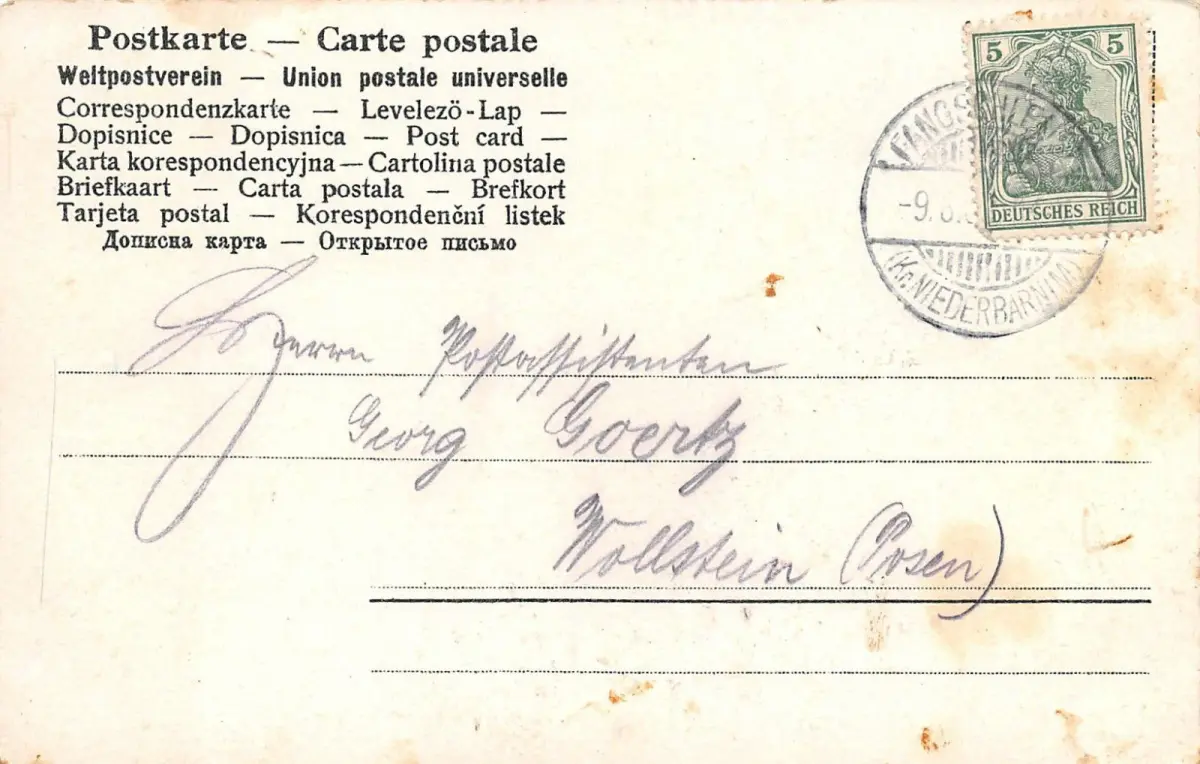 Postkarte — Carte postale
Weltpostverein — Union postale universelle
Correspondenzkarte — Levelezö-Lap —
Dopisnice — Dopisnica — Post card —
Karta korespondencyjna — Cartolina postale
Briefkaart — Carta postala — Brefkort
Tarjeta postal — Korespondenční listek
Дописна карта — Открытое письмо
5 5
DEUTSCHES REICH
-9.8.
(Kr. NIEDERBARNIM)
Herrn Postassistenten
Georg Goertz
Wollstein (Posen)